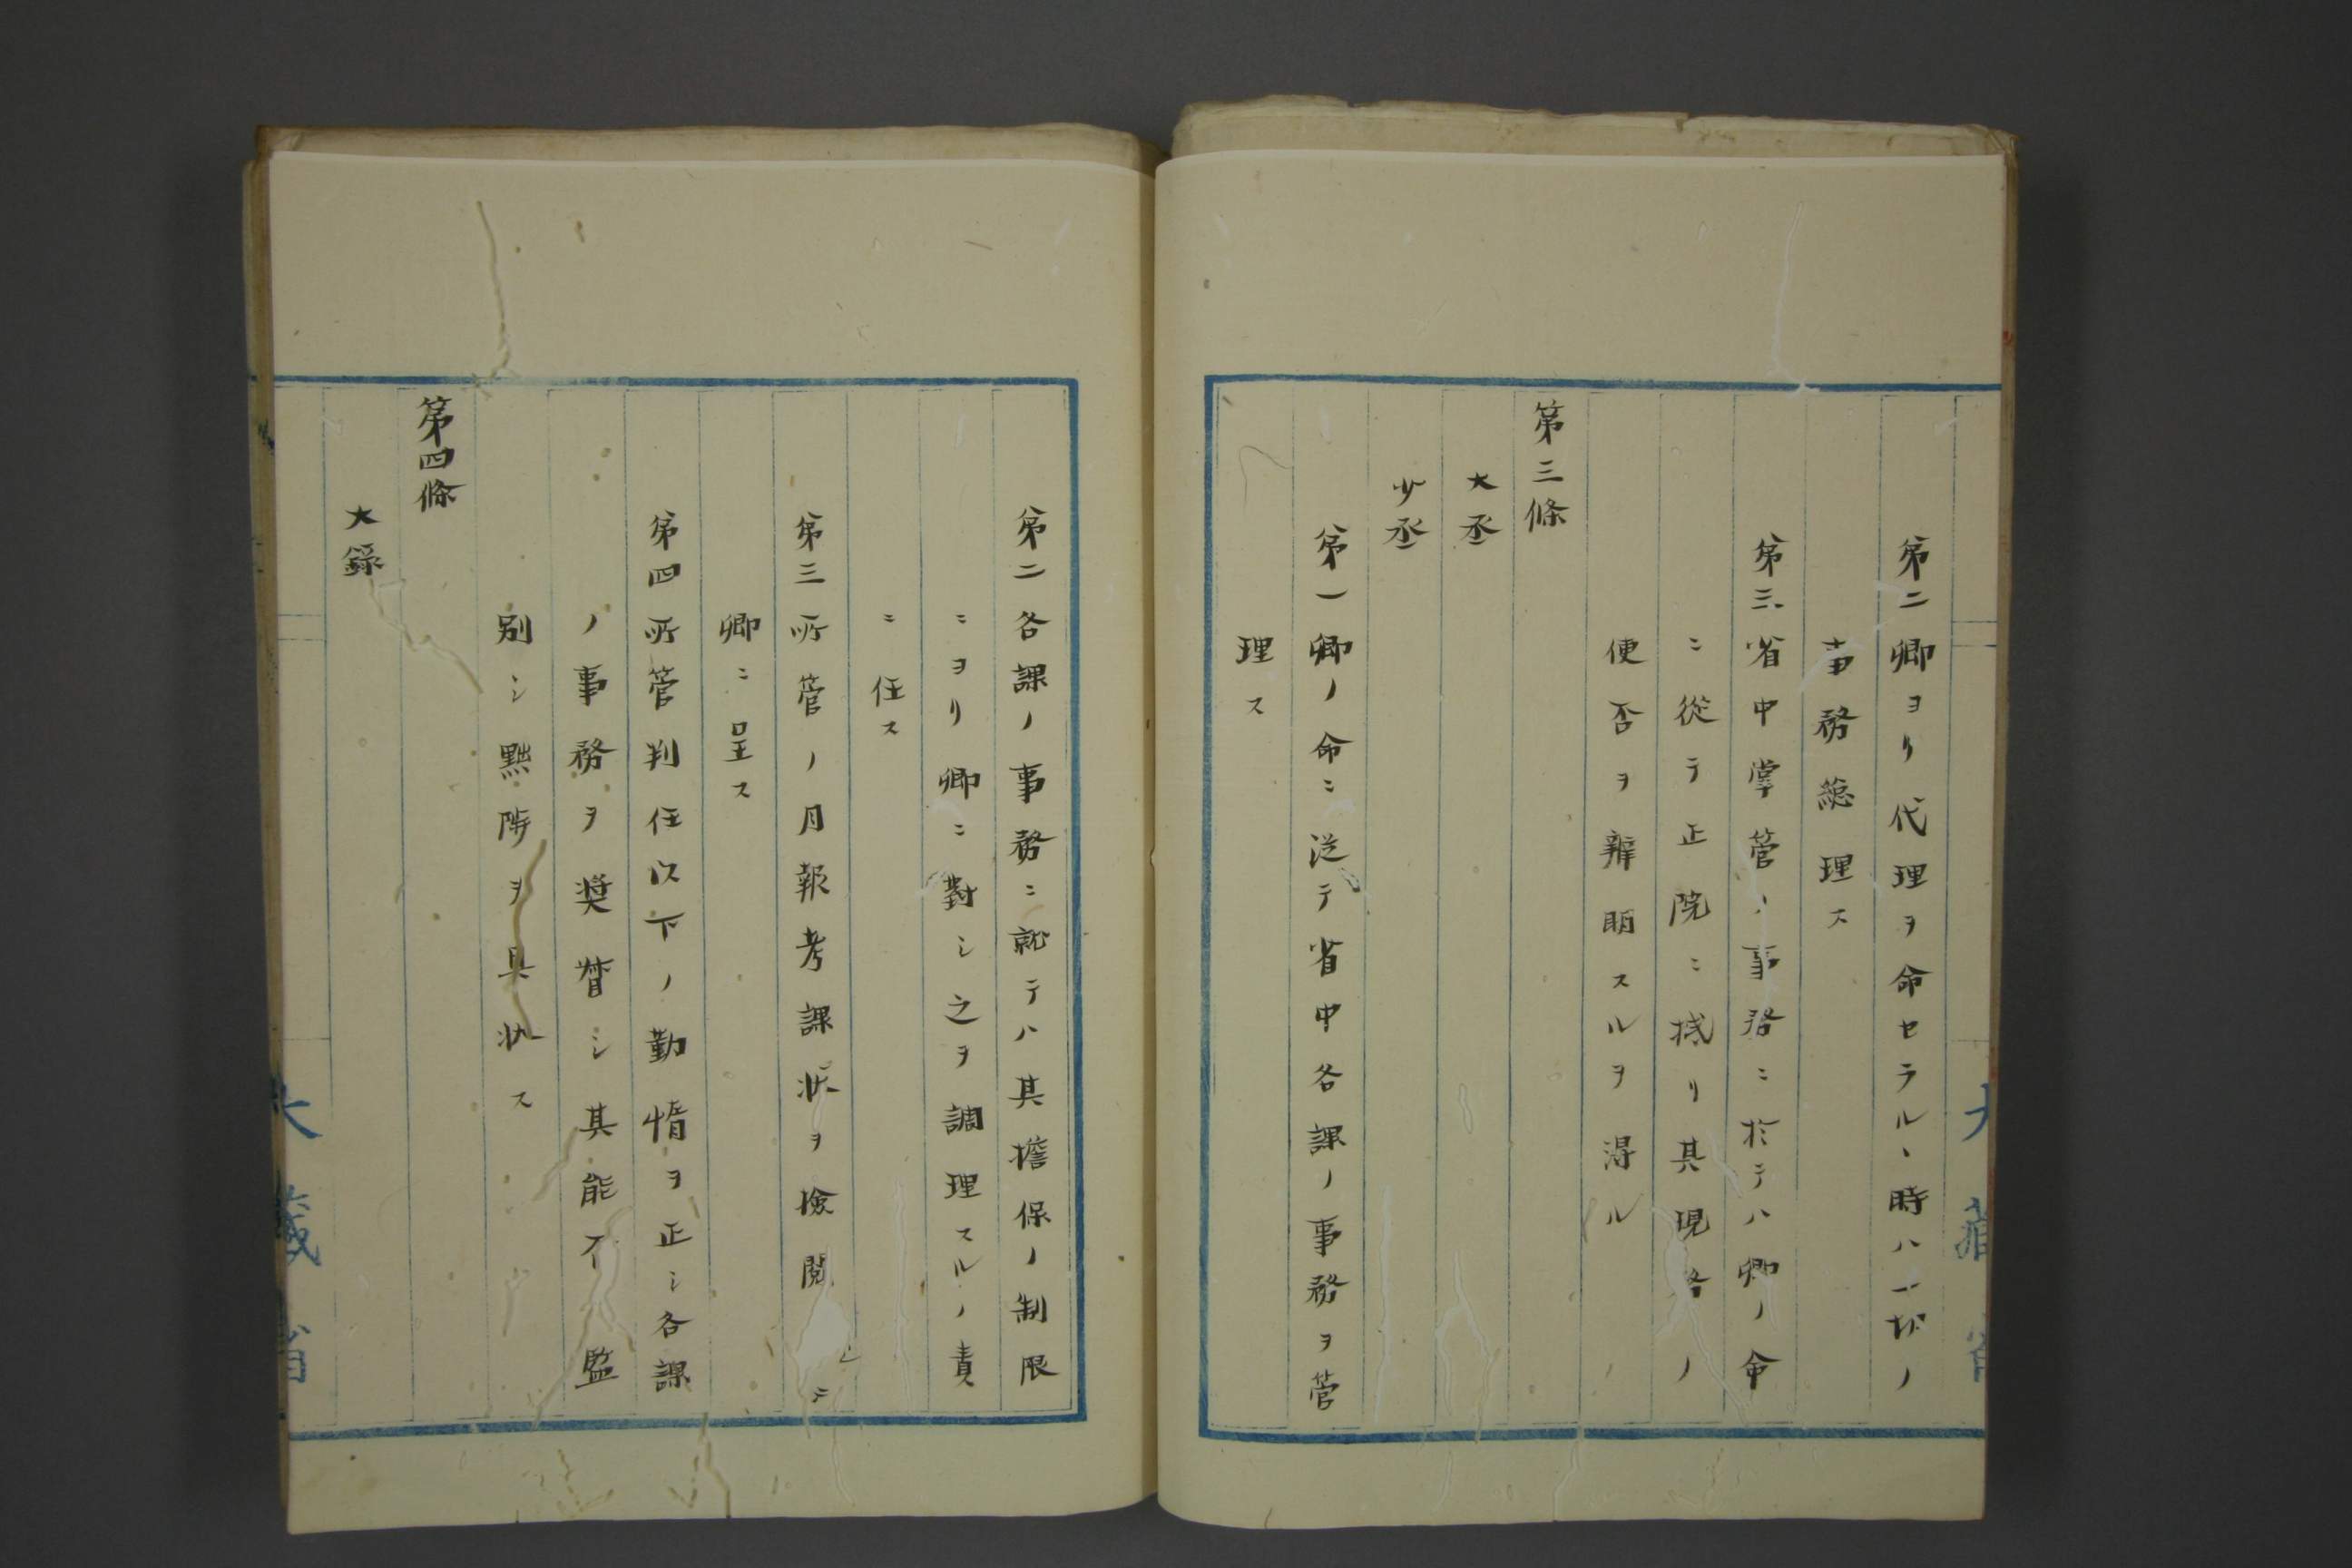 第二卿ヨリ代理ヲ命セラルヽ時ハ一切ノ
事務総理ス
第三省中掌管ノ事務ニ於テハ卿ノ命
ニ從テ正院ニ抵リ其現務ノ
便否ヲ辨明スルヲ得ル
第三條
大丞
少丞
第一卿ノ命ニ從テ省中各課ノ事務ヲ管
理ス
第二各課ノ事務ニ就テハ其擔保ノ制限
ニヨリ卿ニ對シ之ヲ調理スルノ責
ニ任ス
第三所管ノ月報考課状ヲ撿閲シ
卿ニ呈ス
第四所管判任以下ノ勤惰ヲ正シ各課
ノ事務ヲ奨督シ其能不監
別シ黜陟ヲ具状ス
第四條
大録
大藏省